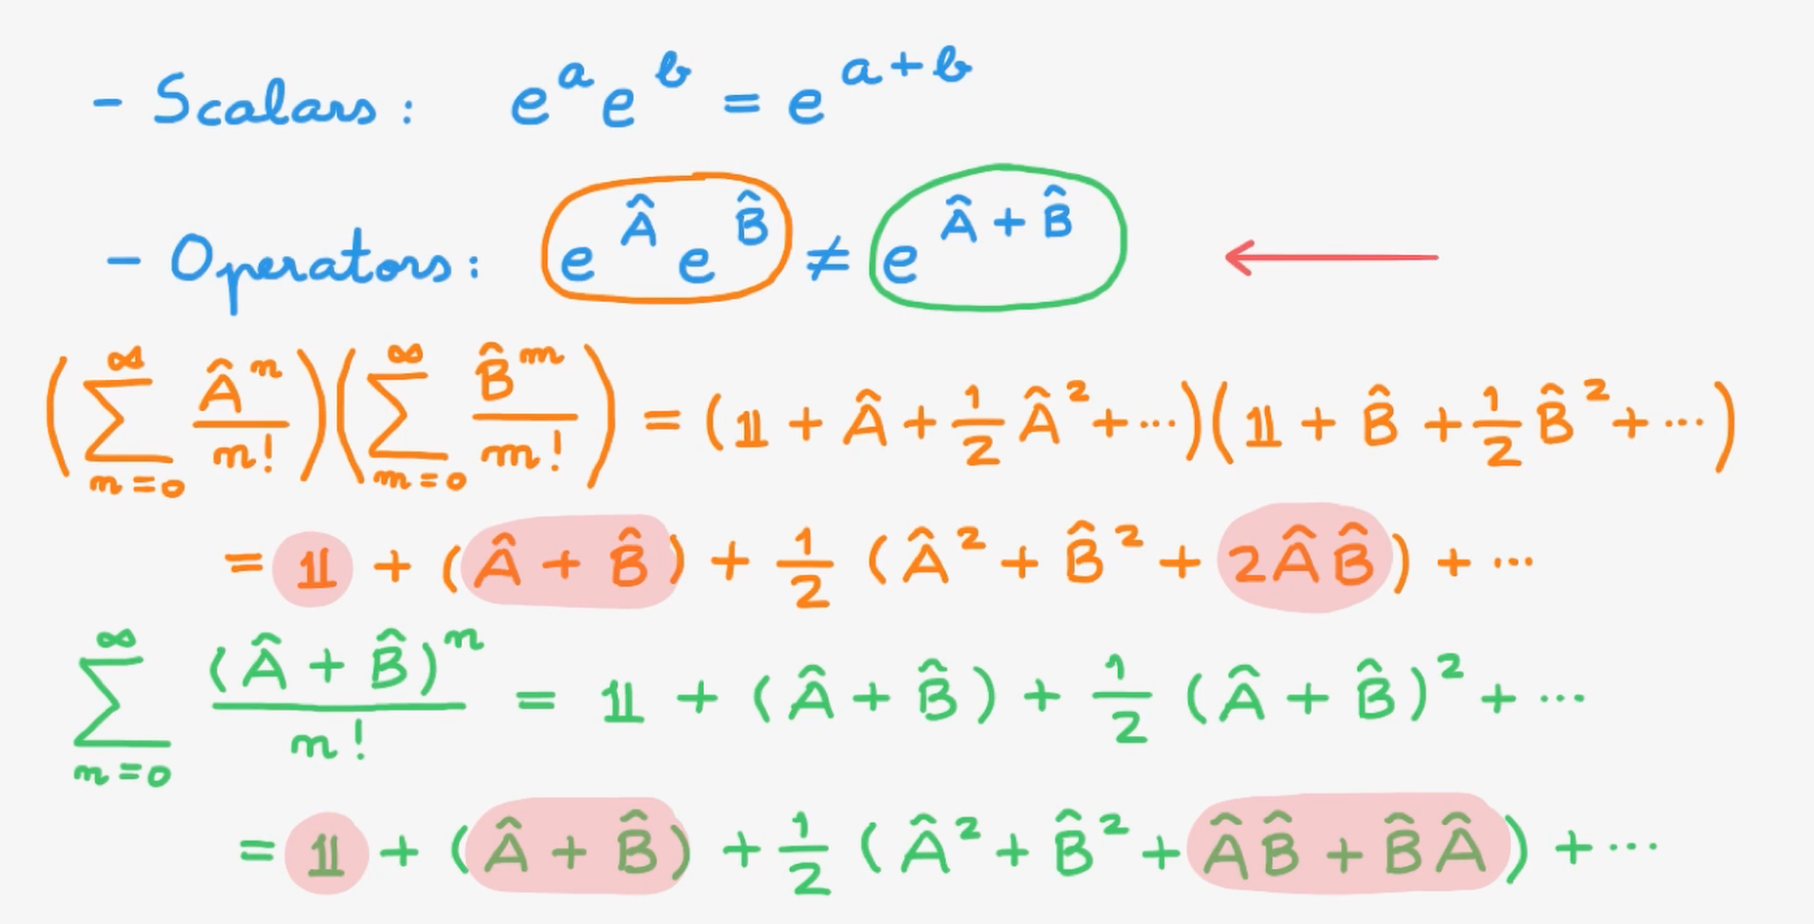 - Scalars: e^a e^b = e^{a+b}
- Operators: e^Â e^B̂ ≠ e^{Â+B̂}
(∑_{n=0}^∞ Â^n/n!)(∑_{m=0}^∞ B̂^m/m!) = (𝟙 + Â + 1/2 Â² + ⋯)(𝟙 + B̂ + 1/2 B̂² + ⋯)
= 𝟙 + (Â + B̂) + 1/2 (Â² + B̂² + 2ÂB̂) + ⋯
∑_{n=0}^∞ (Â + B̂)^n/n! = 𝟙 + (Â + B̂) + 1/2 (Â + B̂)² + ⋯
= 𝟙 + (Â + B̂) + 1/2 (Â² + B̂² + ÂB̂ + B̂Â) + ⋯